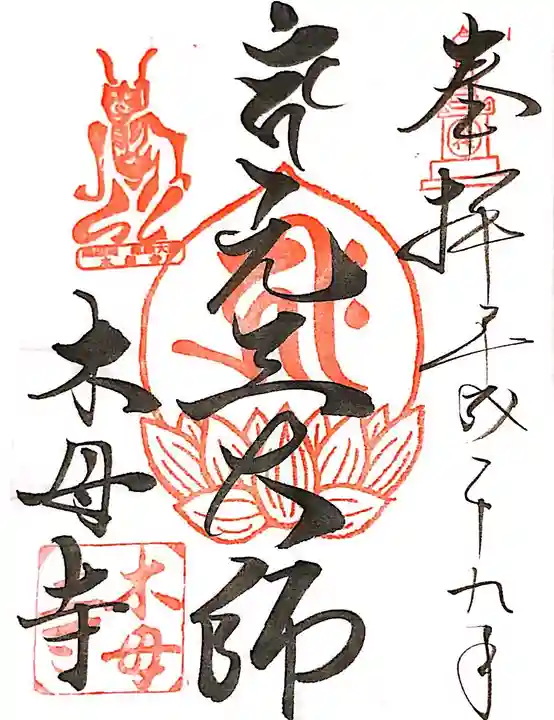 奉拝 平成二十九年
元三大師
木母寺
木母